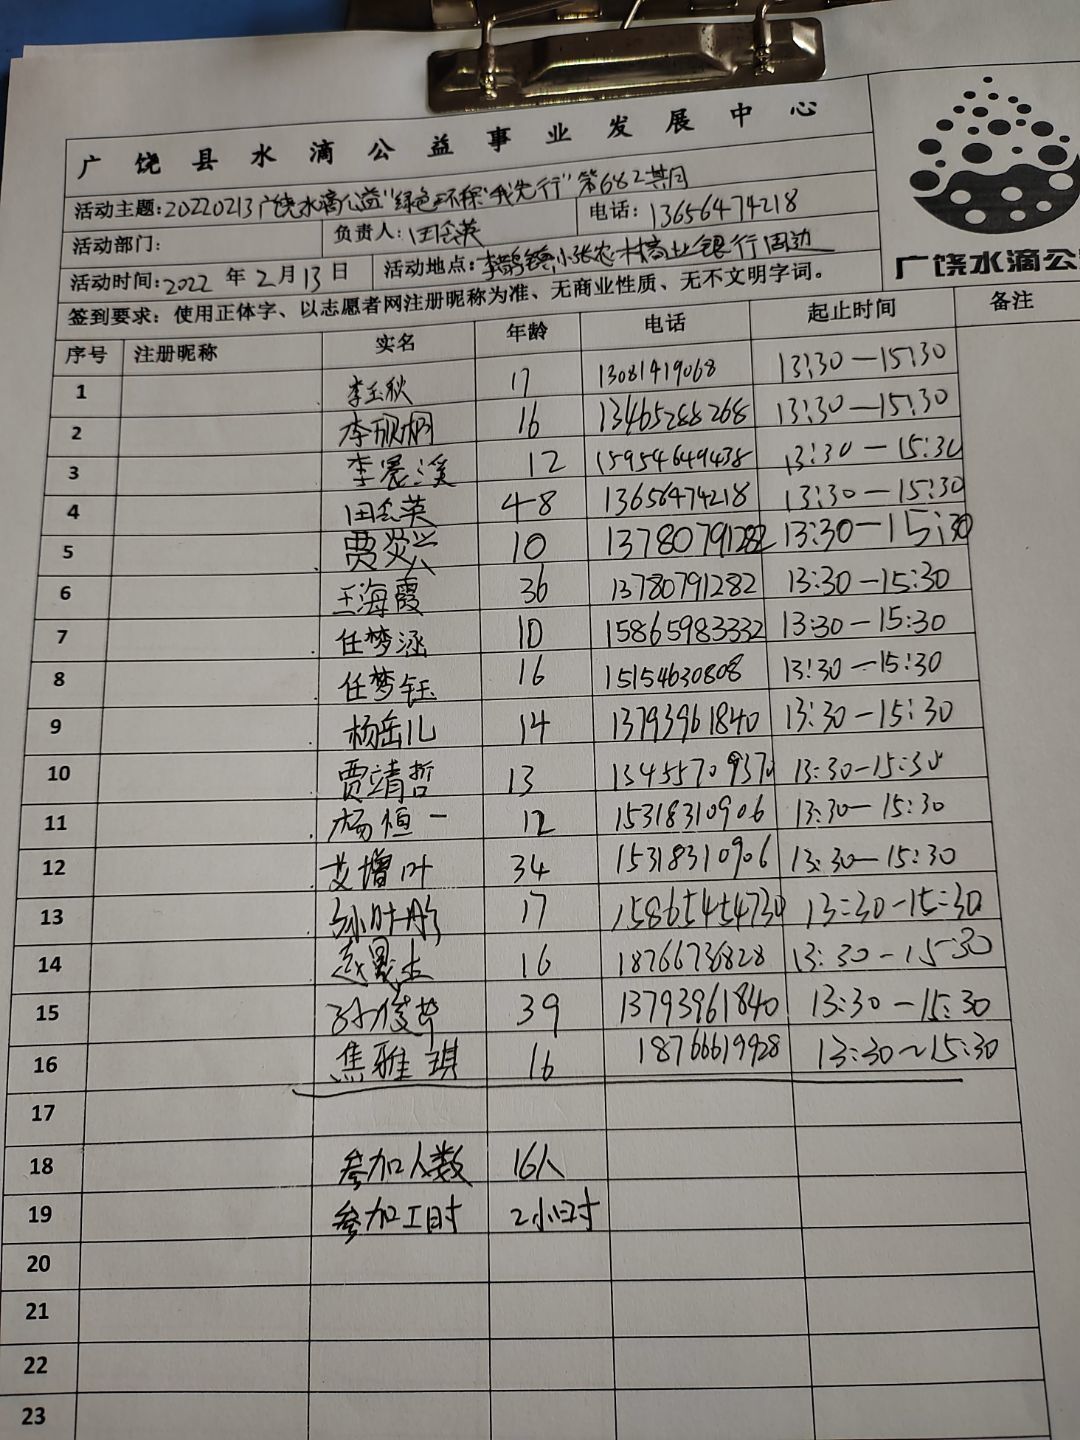 广饶县水滴公益事业发展中心
活动主题:20220213广饶水滴公益"绿色环保我先行"第682期 电话:13656474218
活动部门: 负责人:田会英
活动时间:2022年2月13日 活动地点:李鹊镇小张农村商业银行周边
签到要求:使用正体字、以志愿者网注册昵称为准、无商业性质、无不文明字词。
广饶水滴公
序号 注册昵称 实名 年龄 电话 起止时间 备注
1 李玉秋 17 13081419068 13:30—15:30
2 李欣桐 16 13465288268 13:30—15:30
3 李晨溪 12 15954649438 13:30—15:30
4 田会英 48 13656474218 13:30—15:30
5 贾焱兴 10 13780791282 13:30—15:30
6 王海霞 36 13780791282 13:30—15:30
7 任梦涵 10 15865983332 13:30—15:30
8 任梦钰 16 15154630808 13:30—15:30
9 杨岳儿 14 13793961840 13:30—15:30
10 贾靖哲 13 13455709370 13:30—15:30
11 杨恒一 12 15318310906 13:30—15:30
12 艾增叶 34 15318310906 13:30—15:30
13 17 15865454730 13:30—15:30
14 16 18766736828 13:30—15:30
15 39 13793961840 13:30—15:30
16 焦雅琪 16 18766619928 13:30~15:30
17
18 参加人数 16人
19 参加工时 2小时
20
21
22
23